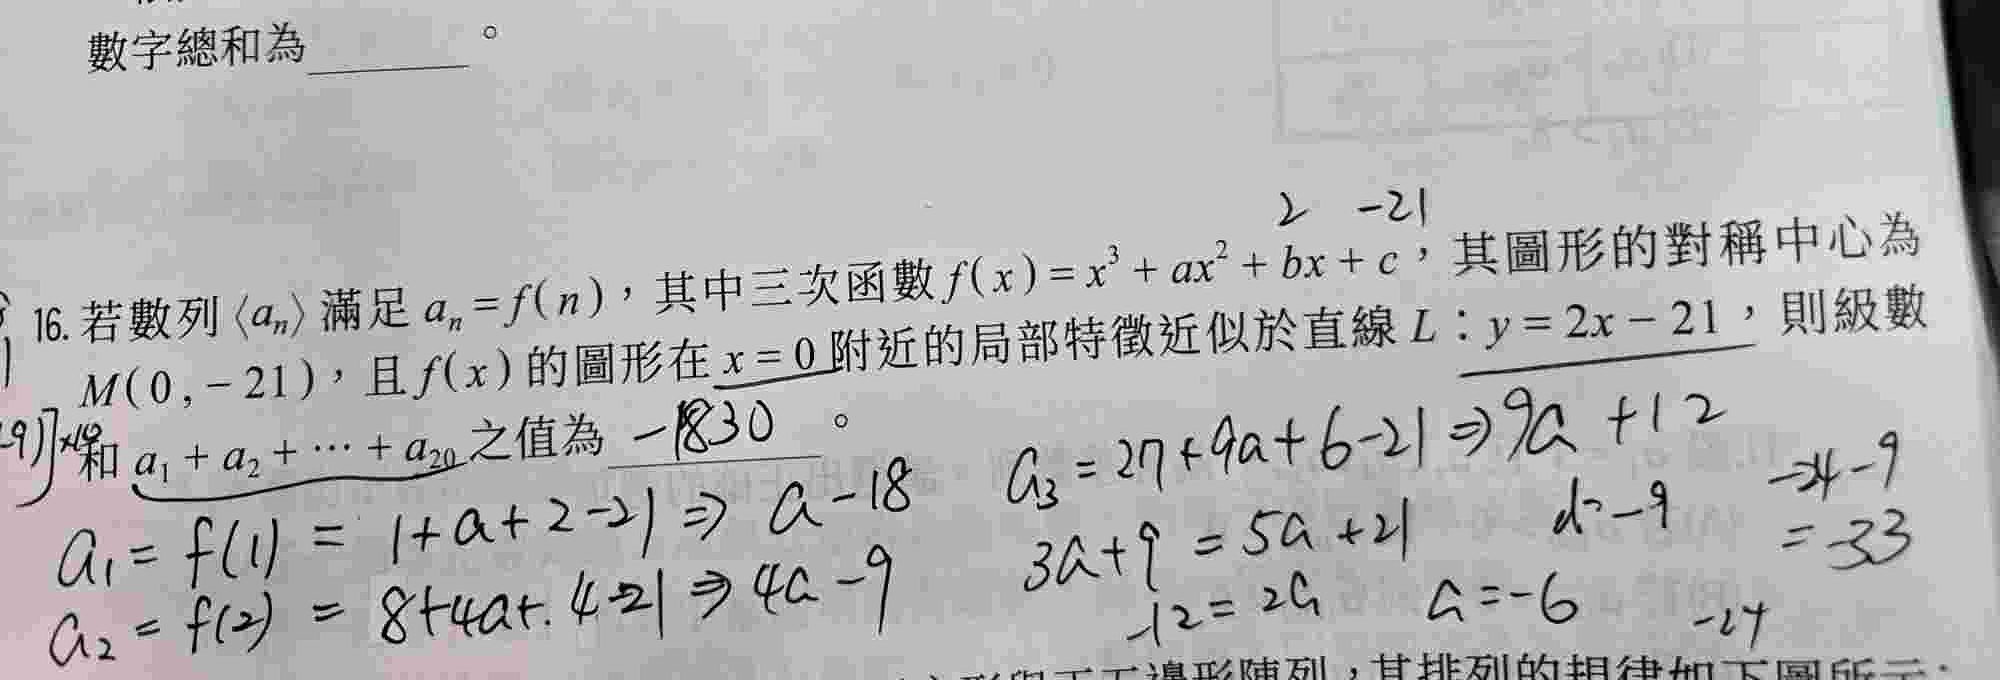 數字總和為______。
2 -21
16. 若數列⟨aₙ⟩滿足 aₙ = f(n)，其中三次函數 f(x) = x³ + ax² + bx + c，其圖形的對稱中心為
M(0, -21)，且 f(x) 的圖形在 x = 0 附近的局部特徵近似於直線 L：y = 2x - 21，則級數
和 a₁ + a₂ + ⋯ + a₂₀ 之值為 -1830 。
a₁ = f(1) = 1+a+2-21 ⇒ a-18
a₂ = f(2) = 8+4a+.4-21 ⇒ 4a-9
a₃ = 27+9a+6-21 ⇒ 9a+12
3a+9 = 5a+21
-12 = 2a
a = -6
d=-9
-24-9
= -33
-24